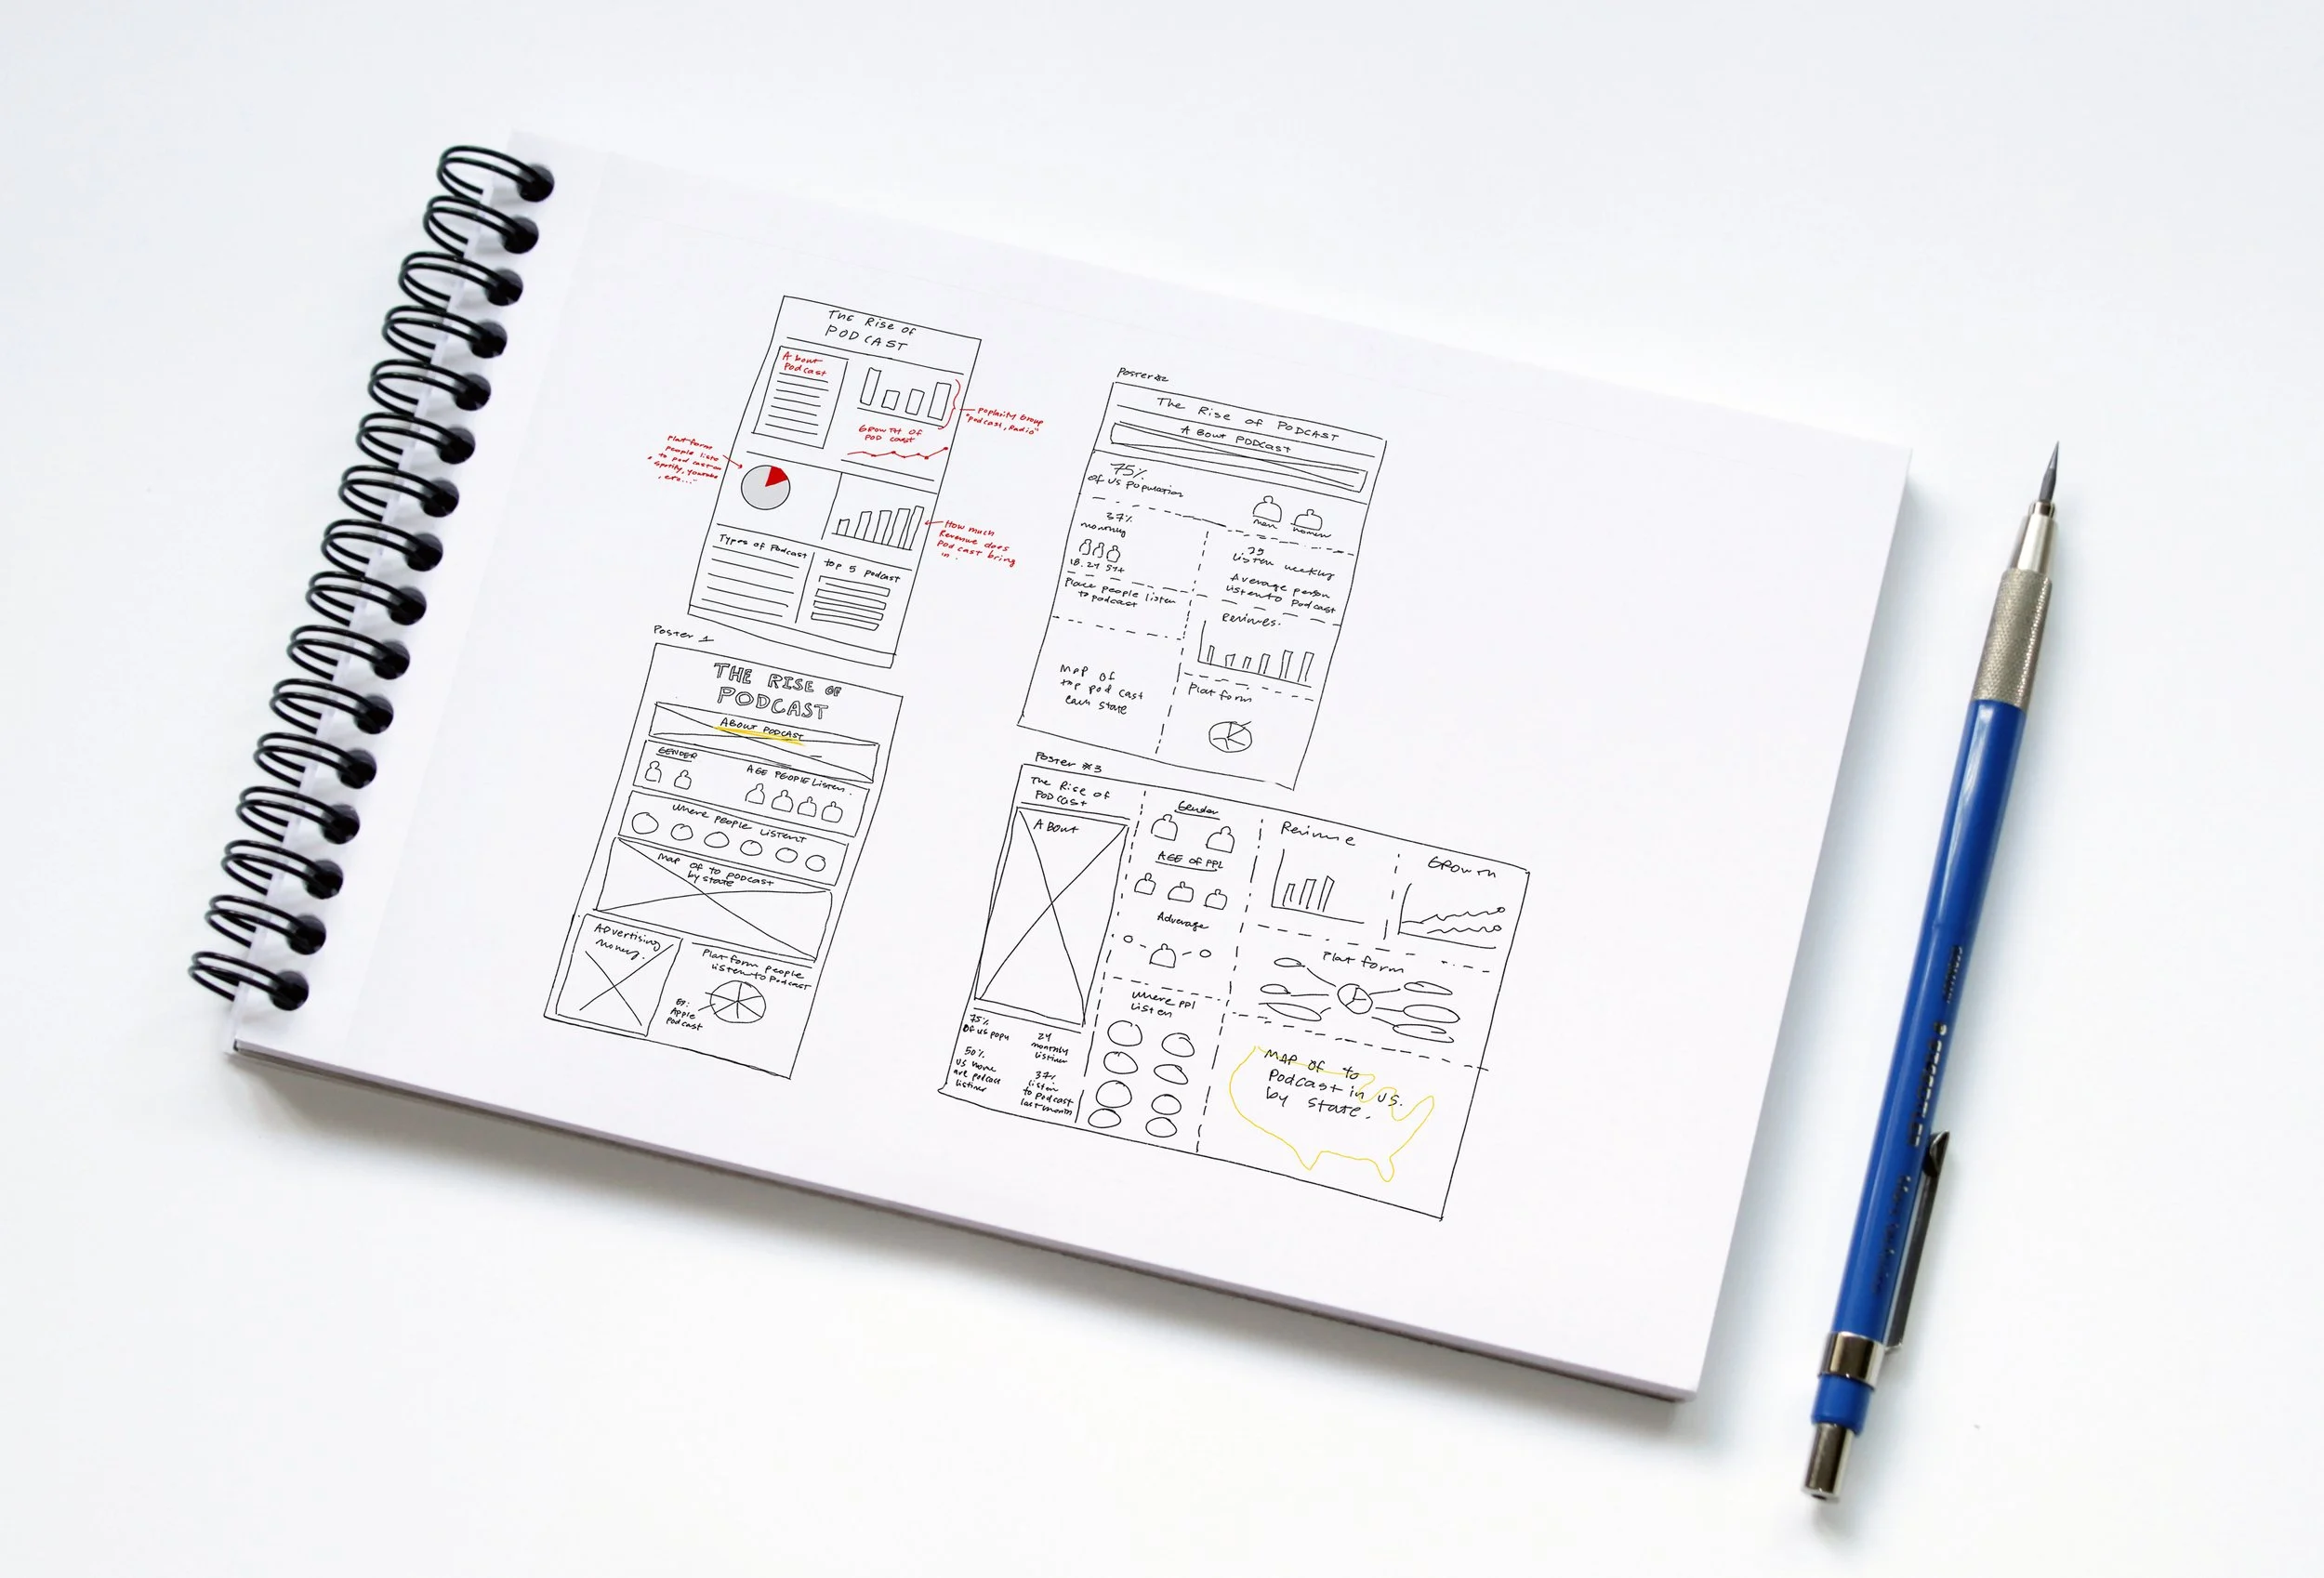 THE Rise of
PODCAST
About
Podcast
GROWTH OF
POD cast
poplarity Group
"podcast, Radio"
Platform
people liste
to podcast on
Spotify, youtube
, etc..."
How much
Revenue does
Podcast bring
in.
Types of Podcast
top 5 podcast
Poster 1
THE RISE OF
PODCAST
ABOUT PODCAST
GENDER
AGE PEOPLE Listen.
Where PEOPLE LISTENT
Map of to podcast
by state
Advertising
money.
Platform people
listen to Podcast
Apple
Podcast
Poster #2
The Rise of PODCAST
A Bout PODCast
75%
of US Population
men women
37%
monthly
Listen weekly
Average person
listen to Podcast
Place people listen
to podcast
Map of
top podcast
each state
Platform
Poster #3
The Rise of
PODCast
A Bout
Gender
AGE OF PPL
Adverage
Where PPL
listen
Growth
Platform
75%
of us popu
24
monthly
listiner
50%
us home
are podcast
listiner
37%
listen
to podcast
last month
MAP OF to
Podcast in US.
by state.